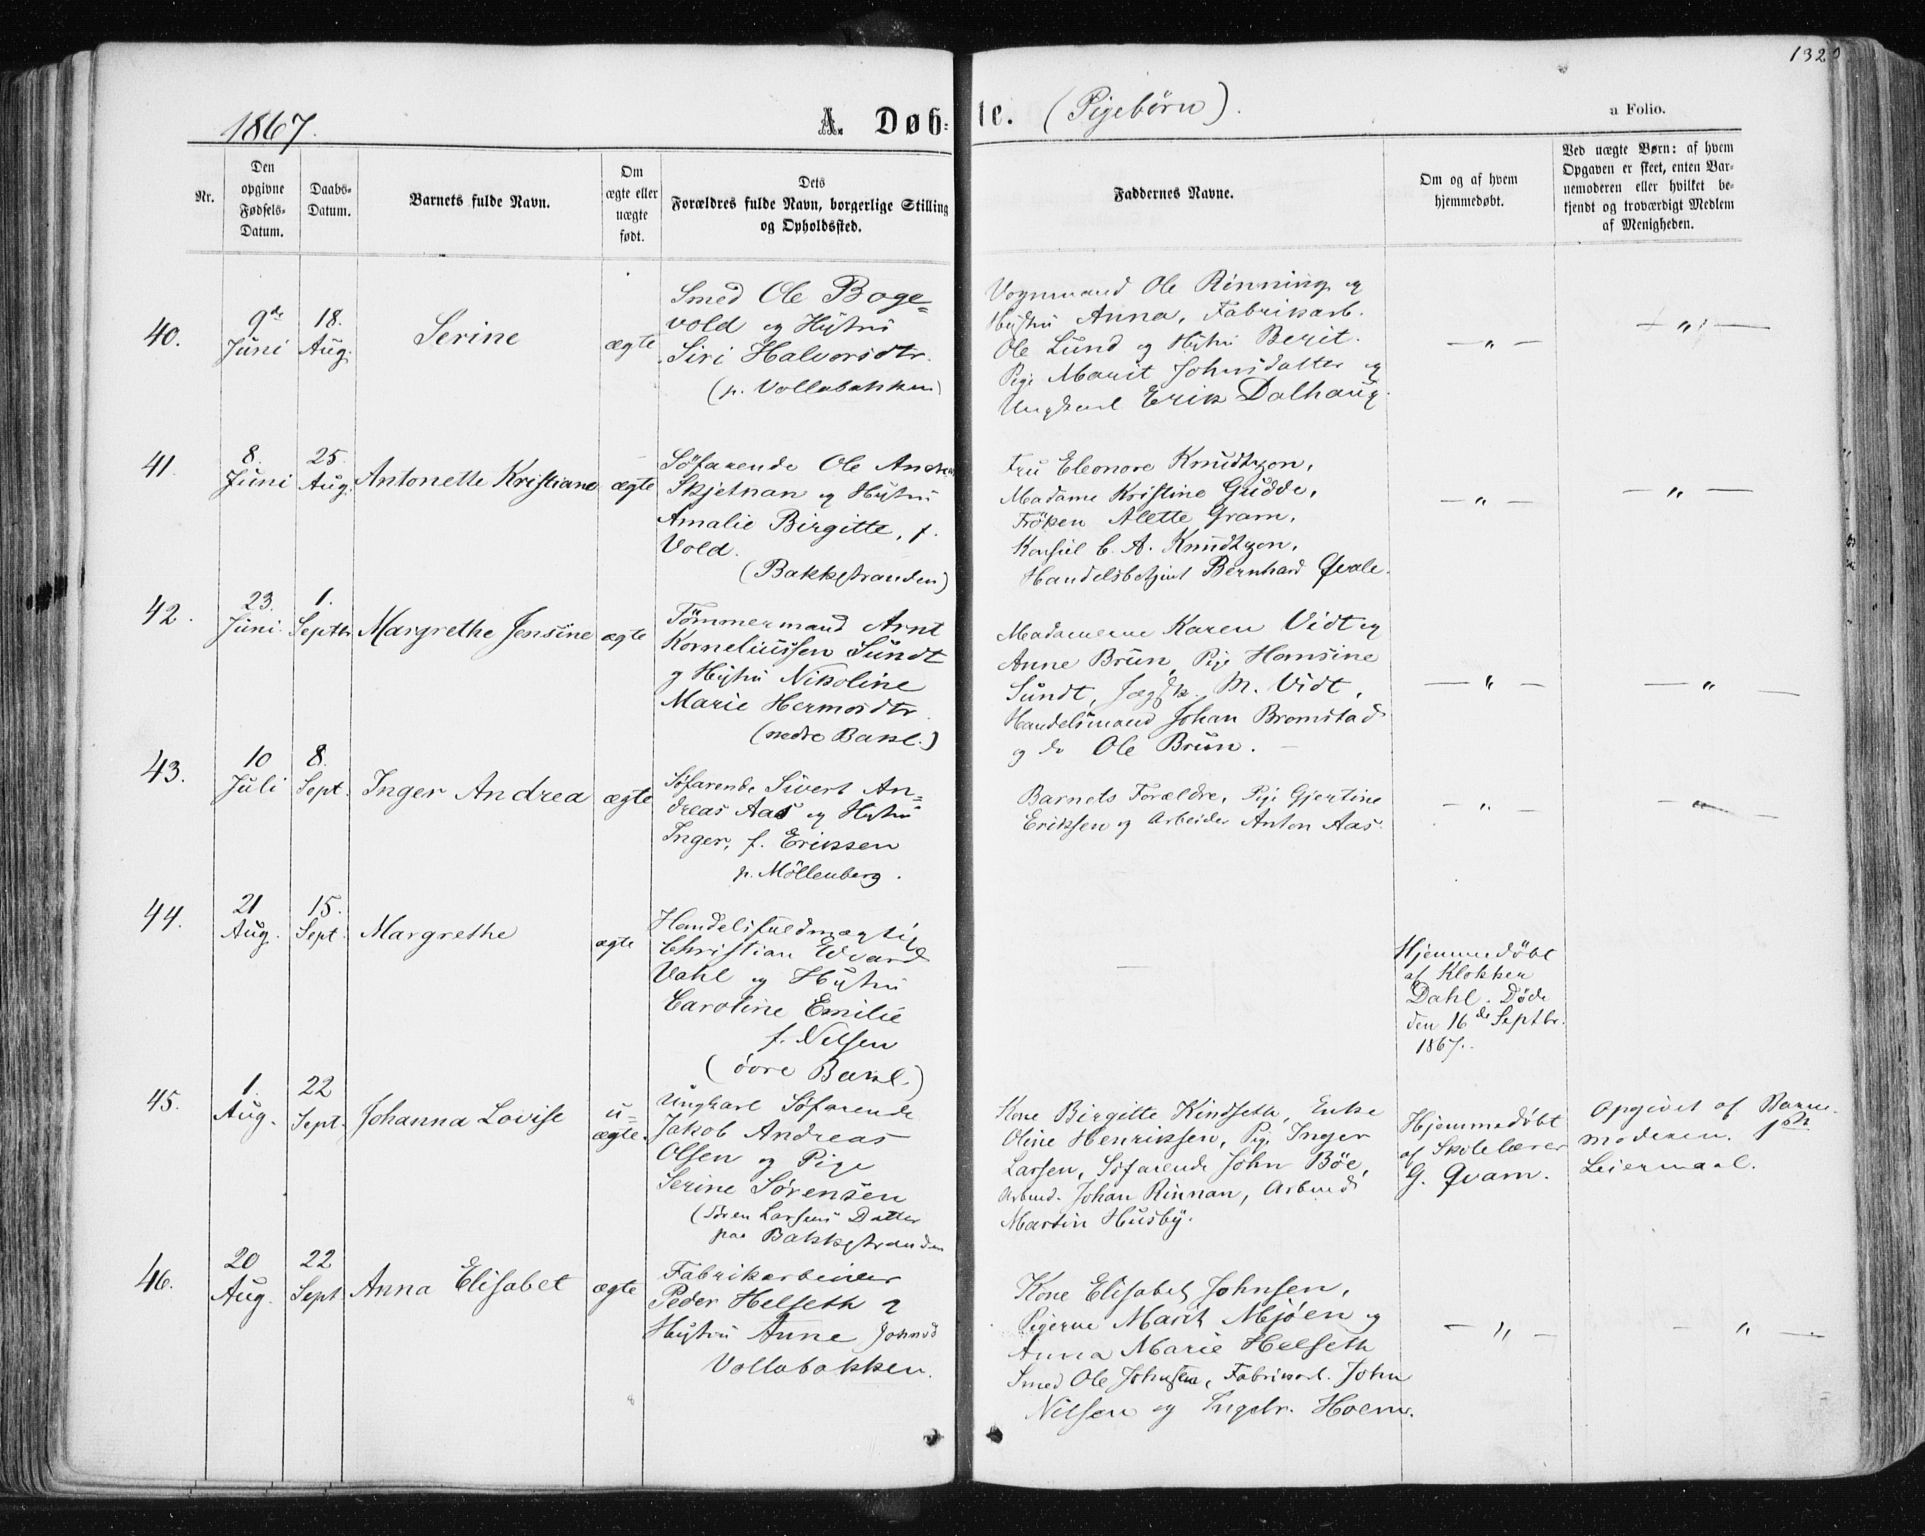 1320
1867.
A. Døbte. (Pigebørn).
a Folio.
Nr.
Den opgivne Fødsels-Datum.
Daabs-Datum.
Barnets fulde Navn.
Om ægte eller uægte født.
Dets Forældres fulde Navn, borgerlige Stilling og Opholdssted.
Faddernes Navne.
Om og af hvem hjemmedøbt.
Ved uægte Børn: af hvem Opgaven er skeet, enten Barnemoderen eller hvilket bekjendt og troværdigt Medlem af Menigheden.
40.
9de Juni
18. Aug.
Serine
ægte
Smed Ole Boge-
vold og Hustru
Siri Halvorsdtr.
(p. Vollabakken)
Vognmand Ole Rinning og
Hustru Anna, Fabrikarb.
Ole Lund og Hstru Berit.
Pige Marit Johnsdatter og
Ungkarl Erik Dalhaug.
— " —
— " —
41.
8. Juni
25. Aug.
Antonette Kristiane
ægte
Søfarende Ole Andreas
Skjetnan og Hustru
Amalie Birgitte, f.
Vold.
(Bakkestranden)
Fru Eleonore Knudtzon,
Madame Kristine Gudde,
Frøken Alette Gram,
Konsul C. A. Knudtzon,
Handelsbetjent Bernhard Qvale.
— " —
— " —
42.
23. Juni
1. Septbr
Margrethe Jensine
ægte.
Tømmermand Arnt
Korneliussen Sundt
og Hustru Nikoline
Marie Hermosdtr.
(nedre Bakl.)
Madamerne Karen Vidt og
Anne Brun, Pige Hansine
Sundt, Jægtsk. M. Vidt,
Handelsmand Johan Bromstad
og do Ole Brun. —
— " —
— " —
43.
10 Juli
8. Sept.
Inger Andrea
ægte
Søfarende Sivert An-
dreas Aas og Hustru
Inger, f. Eriksen
p. Möllenberg.
Barnets Forældre, Pige Gjertine
Eriksen og Arbeider Anton Aas.
— " —
— " —
44.
21 Aug.
15. Sept.
Margrethe
ægte
Handelsfuldmægtig
Christian Edvard
Vahl og Hustru
Caroline Emilie
f. Nilsen
(øvre Bakl.)
—
Hjemmedøbt
af Klokker
Dahl. Døde
den 16de Septbr.
1867.
45.
1. Aug.
22 Sept.
Johanna Lovise
u-
ægte.
Ungkarl Søfarende
Jakob Andreas
Olsen og Pige
Serine Sørensen
(Søren Larsens Datter
paa Bakkestranden
Kone Birgitte Kindseth, Enke
Oline Henriksen, Pige Inger
Larsen, Søfarende John Böe,
Arbmd. Johan Rinnan, Arbmd
Martin Husby.
Hjemmedøbt
af Skolelærer
G. Qvam.
Opgivet af Barne-
moderen. 1ste
Leiermaal.
46.
20 Aug.
22 Sept
Anna Elisabet
ægte
Fabrikarbeider
Peder Helseth &
Hustru Anne Johnsd
Vollabakken.
Kone Elisabet Johnsen,
Pigerne Marit Mjøen og
Anna Marie Helseth
Smed Ole Johnsen, Fabrikarb. John
Nilsen og Ingebr. Holm.
— " —
— " —